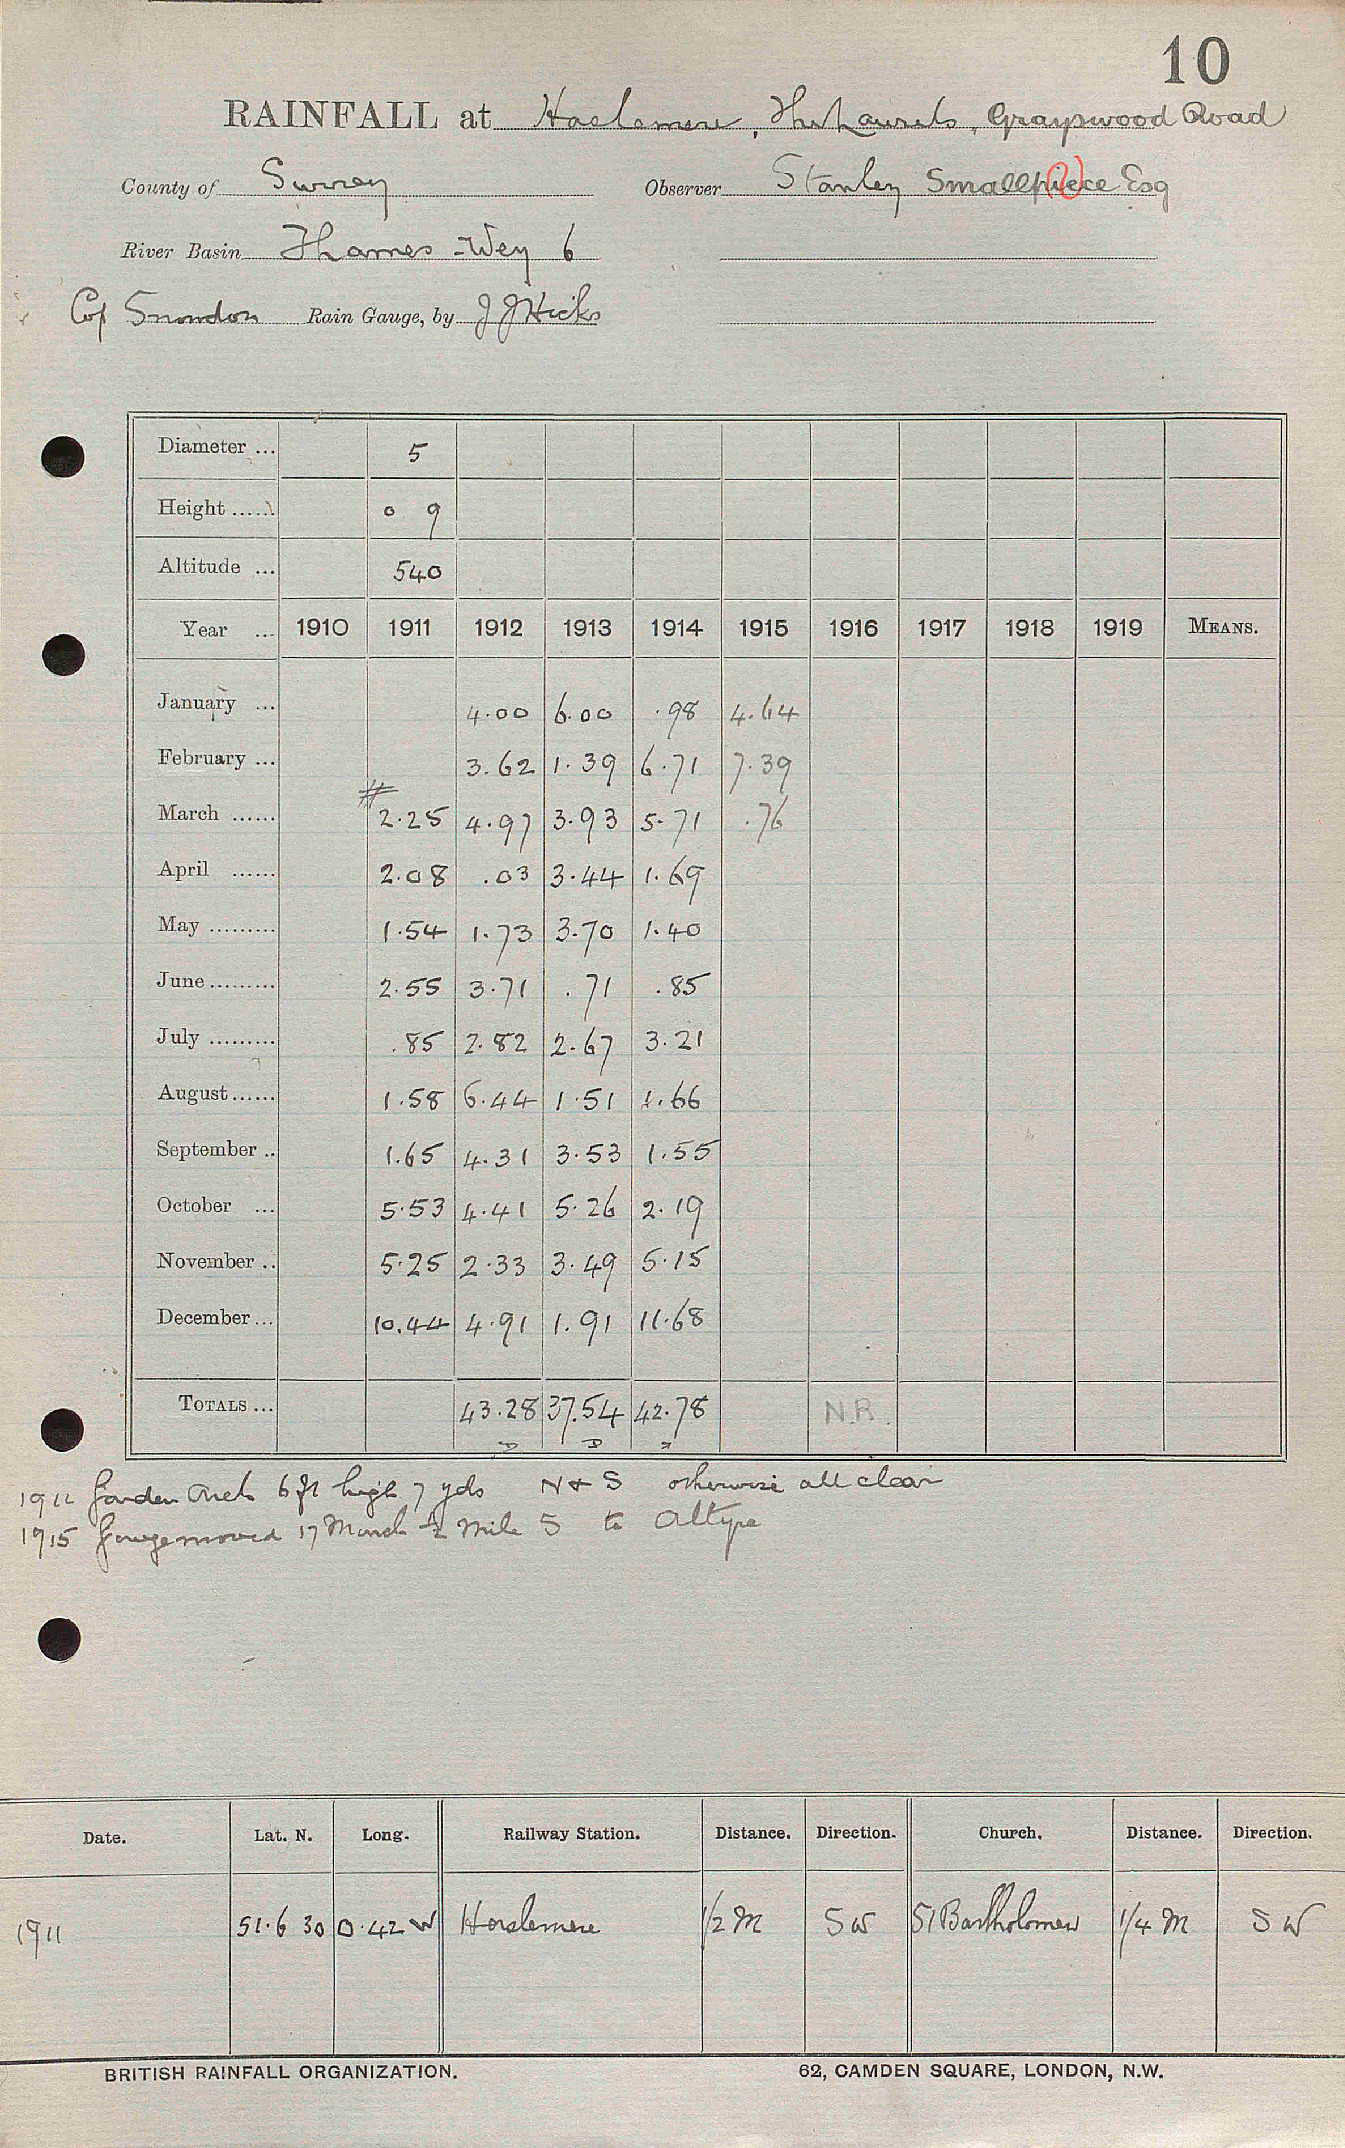 10
RAINFALL at Haslemere, The Laurels, Grayswood Road
County of Surrey Observer Stanley Smallpiece Esq
River Basin Thames - Wey 6
Snowdon Rain Gauge, by J J Hicks
Diameter ... 5
Height ...... 0 9
Altitude ... 540
Year ... 1910 1911 1912 1913 1914 1915 1916 1917 1918 1919 MEANS.
January ... 4.00 6.00 .98 4.64
February ... 3.62 1.39 6.71 7.39
March ...... # 2.25 4.97 3.93 5.71 .76
April ...... 2.08 .03 3.44 1.69
May ......... 1.54 1.73 3.70 1.40
June ......... 2.55 3.71 .71 .85
July ......... .85 2.82 2.67 3.21
August ...... 1.58 6.44 1.51 1.66
September .. 1.65 4.31 3.53 1.55
October ... 5.53 4.41 5.26 2.19
November .. 5.25 2.33 3.49 5.15
December ... 10.44 4.91 1.91 11.68
TOTALS ... 43.28 37.54 42.78 N.R.
Garden 6 ft high 7 yds N & S otherwise all clear
1915 Gauge moved 17 March ½ mile S to Altype
Date. Lat. N. Long. Railway Station. Distance. Direction. Church. Distance. Direction.
1911 51.6 30 0.42 W Haslemere 1/2 M SW St Bartholomew 1/4 M SW
BRITISH RAINFALL ORGANIZATION. 62, CAMDEN SQUARE, LONDON, N.W.